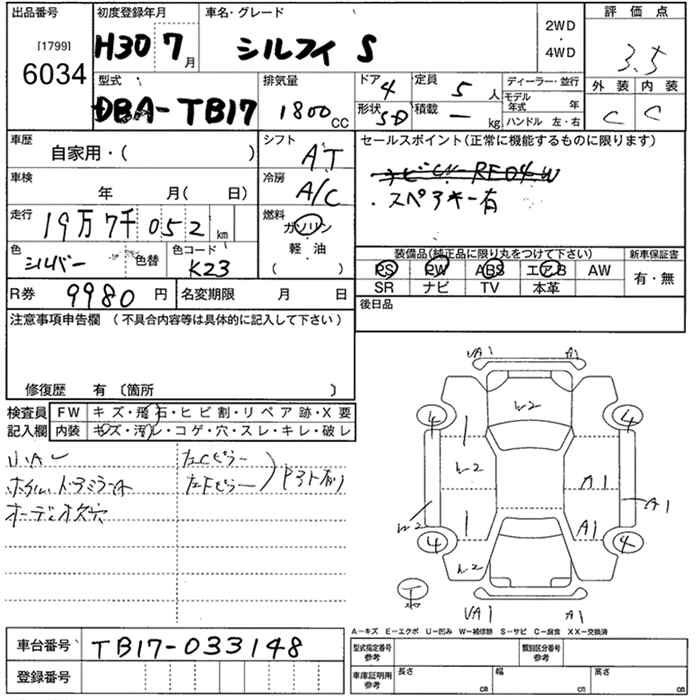 出品番号 初度登録年月 車名・グレード 評価点
[1799] 6034
H30 7月 シルフィ S 2WD ・ 4WD 3.5
型式 排気量 ドア 4 定員 5 人 ディーラー・並行 外装 内装
DBA-TB17 1800 CC 形状 SD 積載 — kg モデル年式 年 ハンドル 左・右 C C
車歴 自家用・( ) シフト AT セールスポイント(正常に機能するものに限ります)
車検 年 月( 日) 冷房 A/C
・スペアキー有
走行 19万7千052km 燃料 ガソリン 軽・油 ( )
色 シルバー 色替 色コード K23
装備品(純正品に限り丸をつけて下さい) 新車保証書
PS PW ABS エアB AW 有・無
SR ナビ TV 本革
R券 9980円 名変期限 月 日 後日品
注意事項申告欄 (不具合内容等は具体的に記入して下さい)
修復歴 有 〔箇所 〕
検査員 FW キズ・飛石・ヒビ割・リペア跡・X要
記入欄 内装 キズ・汚レ・コゲ・穴・スレ・キレ・破レ
左Cピラー
オーディオ欠穴
UA1 A1
W2
4 4
W2 A1
W2 A1
A1
4 4
W2
T
UA1 A1
A-キズ E-エクボ U-凹み W-補修跡 S-サビ C-腐食 XX-交換済
車台番号 TB17-033148
登録番号
型式指定番号 参考 類別区分番号 参考
車庫証明用 参考 長さ cm 幅 cm 高さ cm